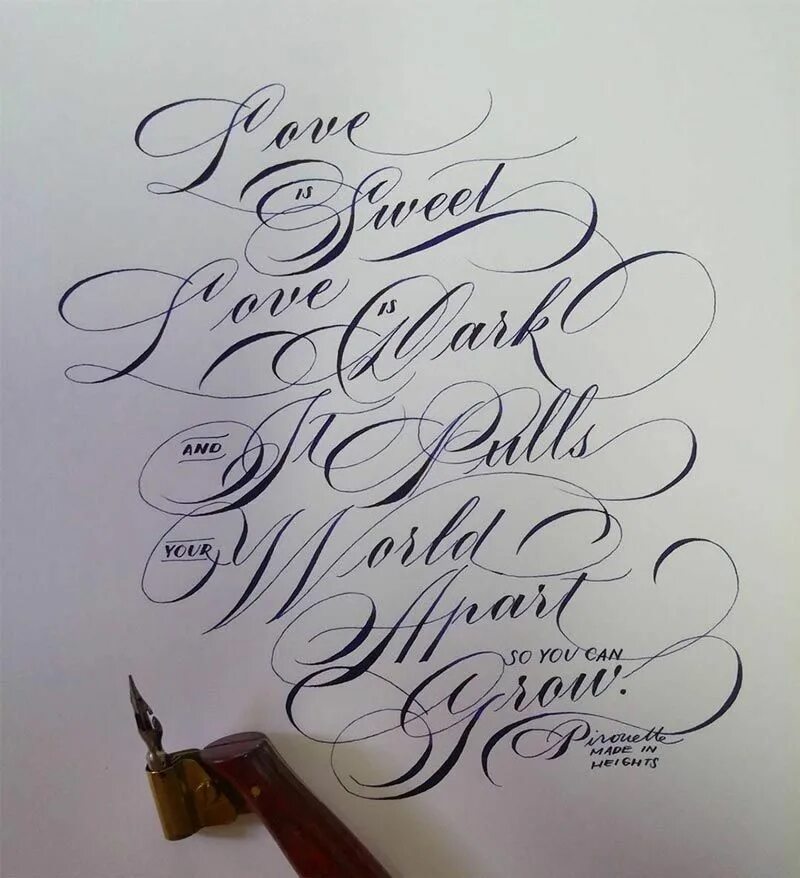 Love
is Sweet
Love is Dark
AND It Pulls
YOUR World
Apart
SO YOU CAN
Grow.
Pirouette
MADE IN
HEIGHTS